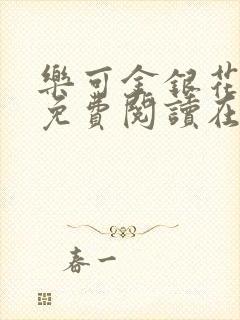 樂可金銀花
免費閱讀在
春一